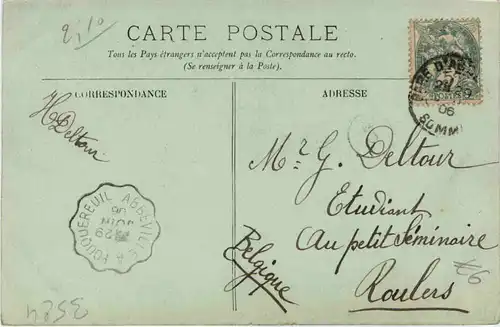 2,10
CARTE POSTALE
Tous les Pays étrangers n'acceptent pas la Correspondance au recto.
(Se renseigner à la Poste).
CORRESPONDANCE
H Deltour
FOUQUEREUIL A ABBEVILLE
29
JUIN
06
3524
ADRESSE
06
SOMME
Mr G. Deltour
Etudiant
Au petit Séminaire
Roulers
Belgique